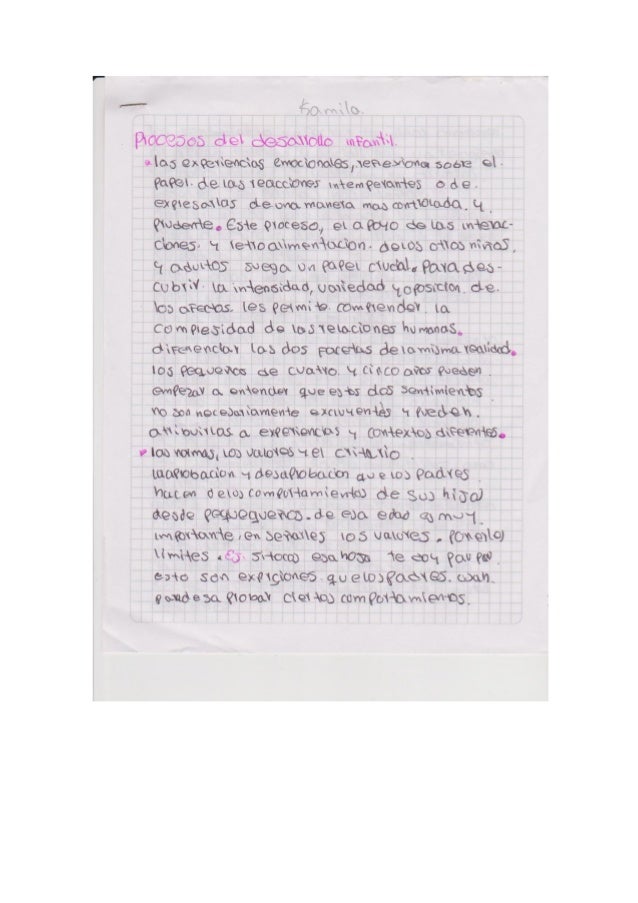 Kamila.
Procesos del desarrollo infantil.
las experiencias emocionales, reflexiona sobre el.
Papel. de las reacciones intemperantes o de.
expresarlas de una manera mas controlada. y.
Prudente. Este proceso, el apoyo de las interac-
ciones. y retroalimentacion. de los otros niños.
y adultos juega un papel crucial. Para des-
cubrir la intensidad, variedad y oposicion. de.
los afectos. les permite. comprender. la
complejidad de las relaciones humanas.
diferenciar las dos facetas de la misma realidad.
los pequeños de cuatro. y cinco años pueden.
empezar a entender que estos dos sentimientos
no son necesariamente excluyentes y pueden.
atribuirlas a experiencias y contextos diferentes.
las normas, los valores y el criterio
la aprobacion y desaprobacion que los padres
hacen de los comportamientos de sus hijos
desde pequegueños. de esa edad es muy.
importante. enseñarles los valores. ponerles
limites. Ej. si tocas esa hoja te doy pau pau
esto son expiciones. que los padres. usan.
para desaprobar ciertos comportamientos.